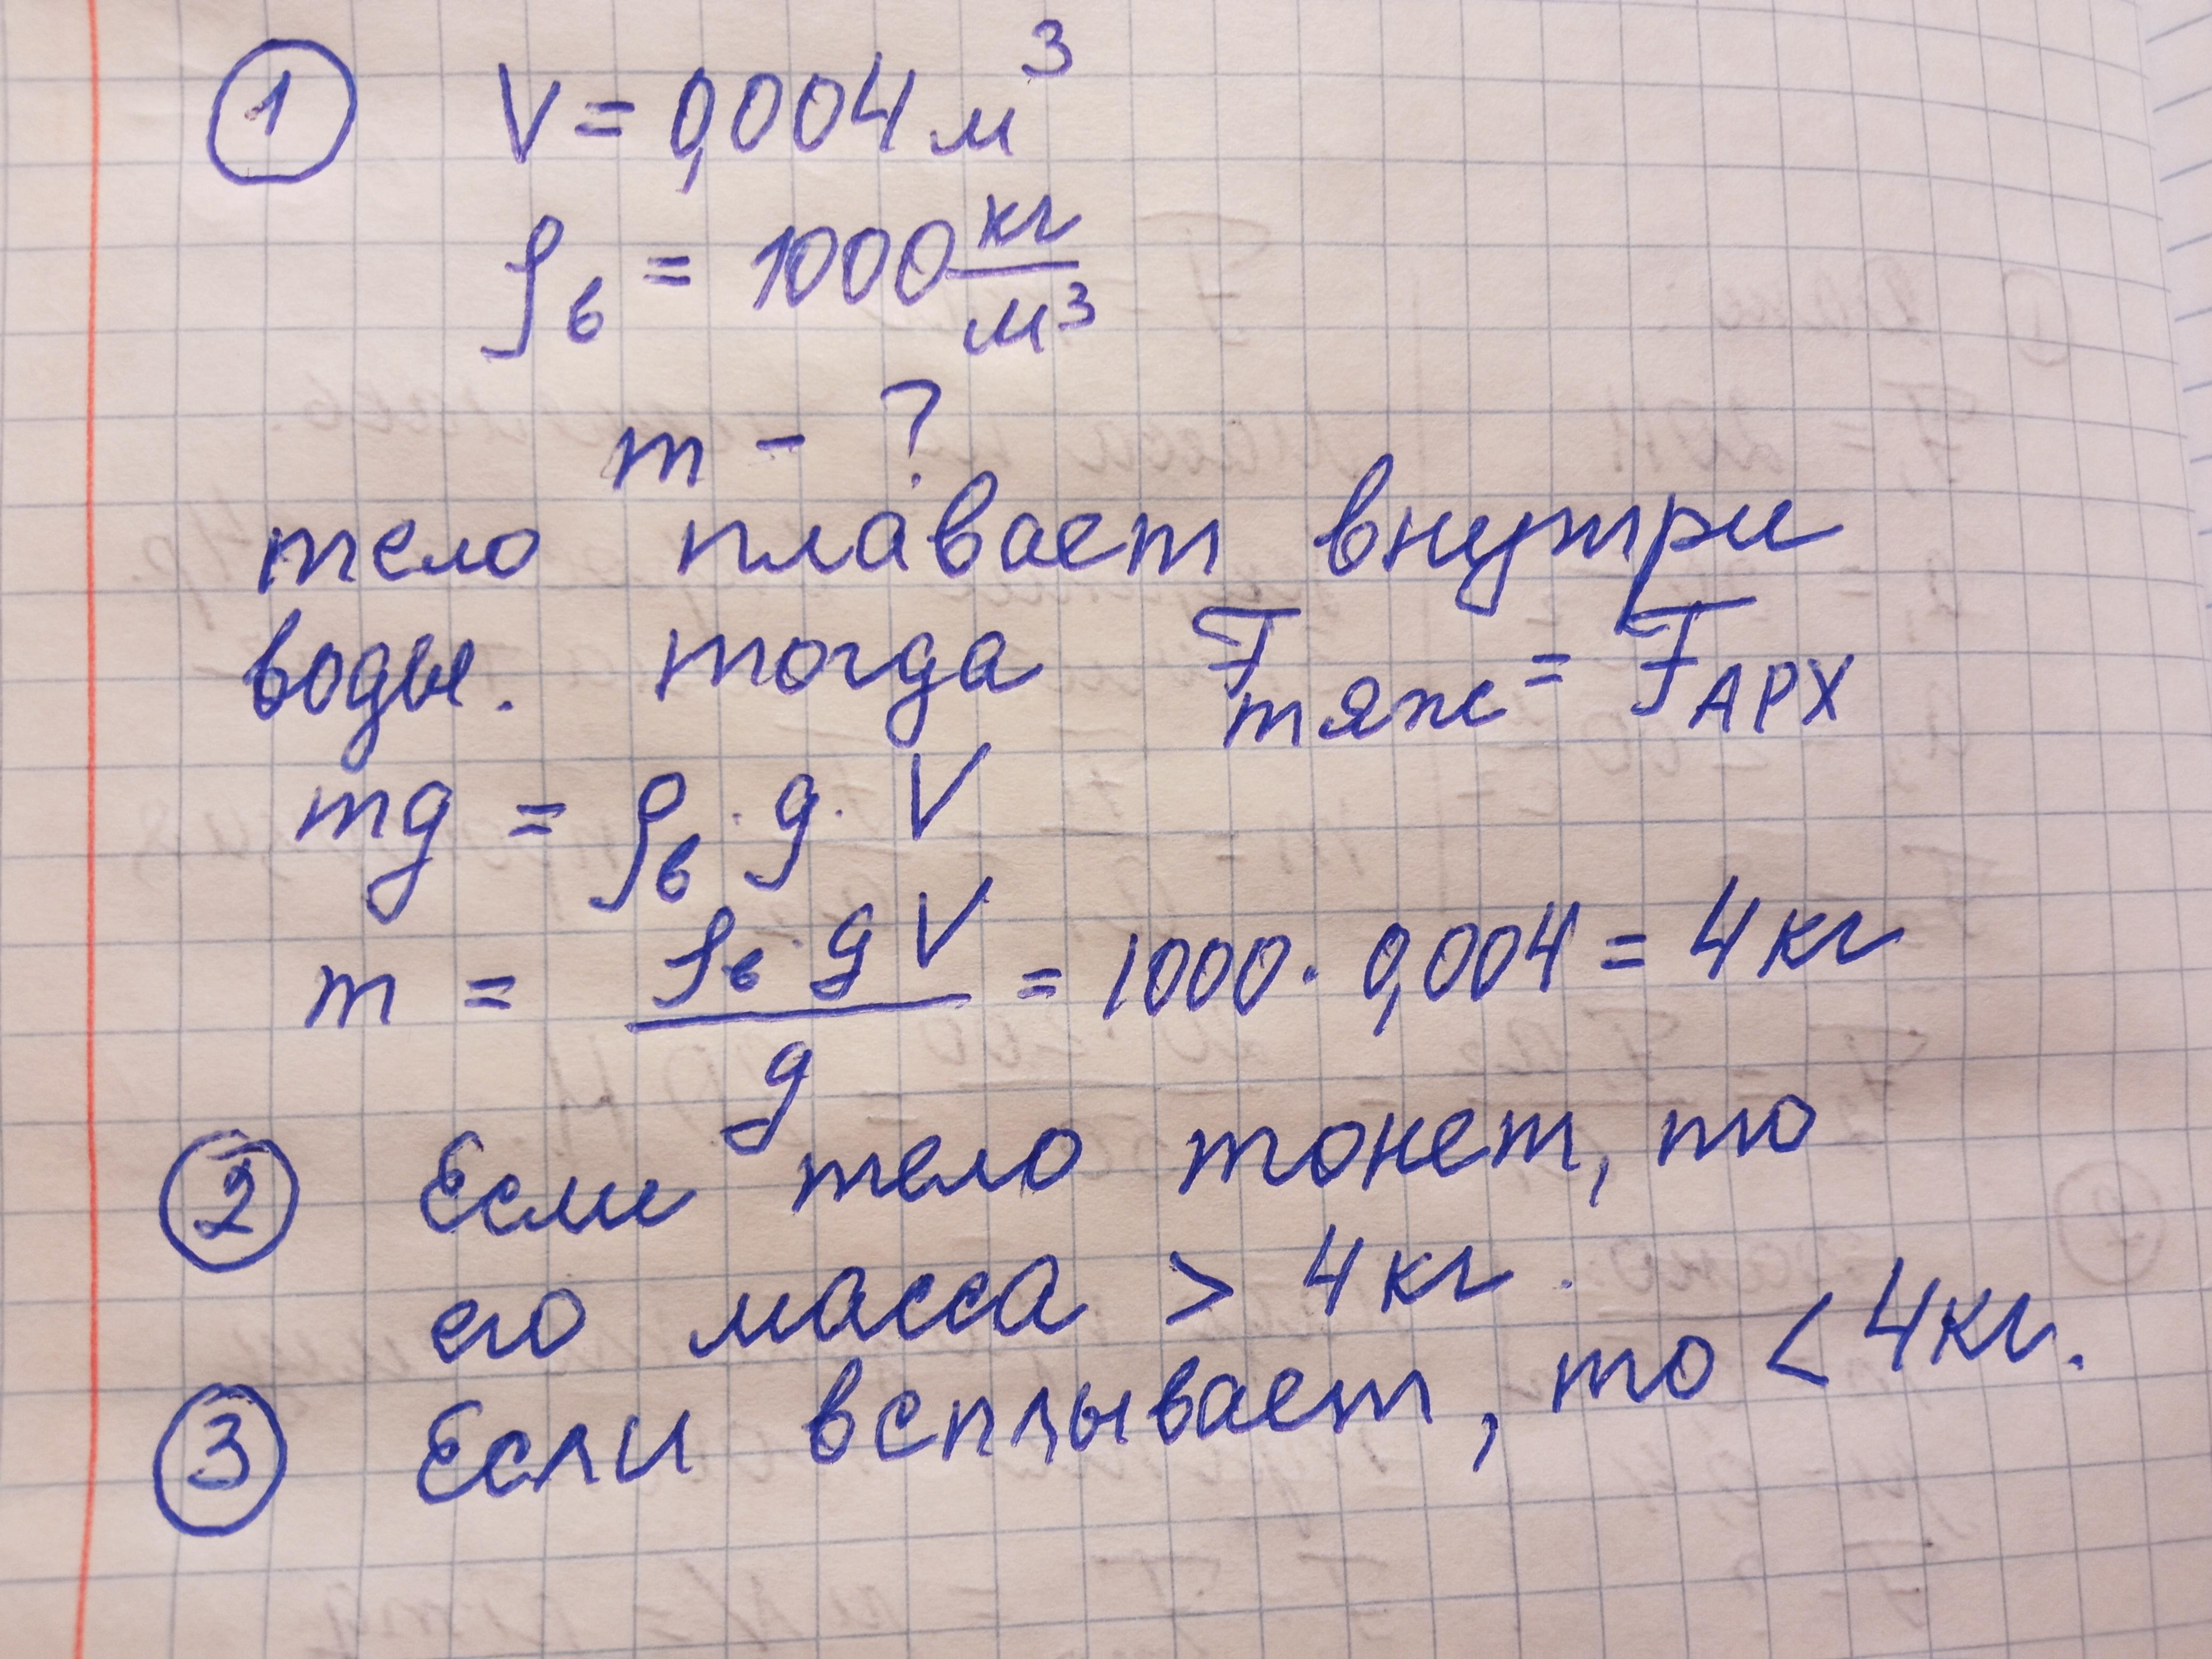 ① V = 0,004 м³
ρв = 1000 кг/м³
m - ?
тело плавает внутри
воды. тогда Fтяж = FАРХ
mg = ρв · g · V
m = ρв · g V / g = 1000 · 0,004 = 4 кг
② Если тело тонет, то
его масса > 4 кг.
③ Если всплывает, то < 4 кг.